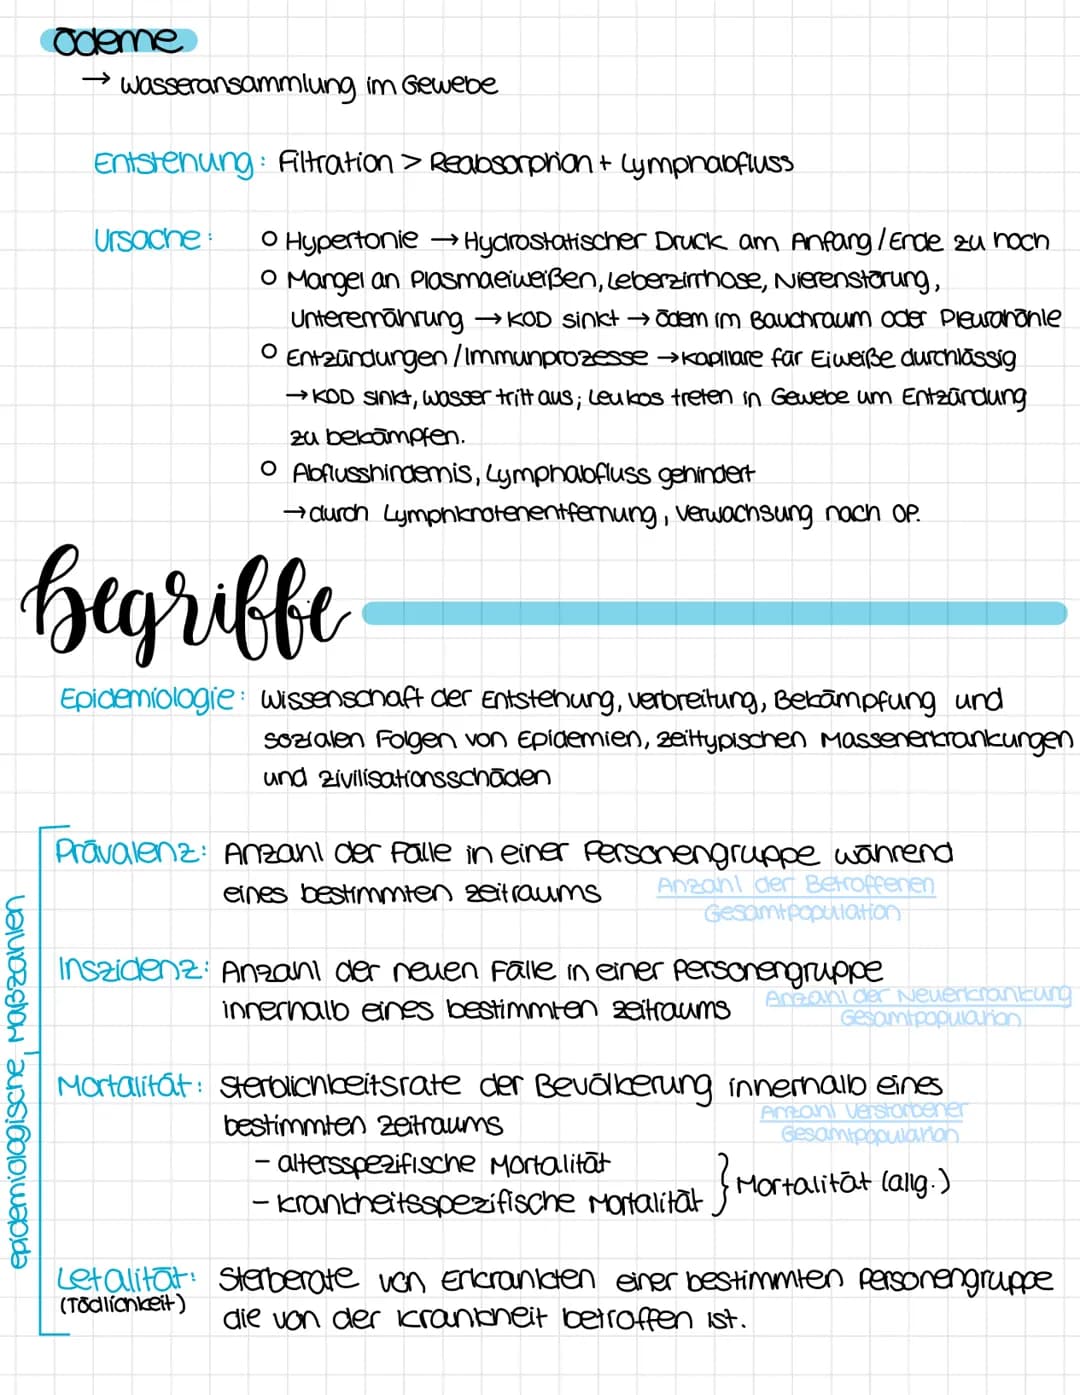 Ödeme
→ Wasseransammlung im Gewebe
Entstehung: Filtration > Reabsorption + Lymphabfluss
Ursache:
○ Hypertonie → Hydrostatischer Druck am Anfang/Ende zu hoch
○ Mangel an Plasmaeiweißen, Leberzirrhose, Nierenstörung,
Unterernährung → KOD sinkt → Ödem im Bauchraum oder Pleurahöhle
○ Entzündungen/Immunprozesse → Kapillare für Eiweiße durchlässig
→ KOD sinkt, Wasser tritt aus; Leukos treten in Gewebe um Entzündung
zu bekämpfen.
○ Abflusshindernis, Lymphabfluss gehindert
→ durch Lymphknotenentfernung, Verwachsung nach OP.
Begriffe
Epidemiologie: Wissenschaft der Entstehung, Verbreitung, Bekämpfung und
sozialen Folgen von Epidemien, zeittypischen Massenerkrankungen
und Zivilisationsschäden
epidemiologische Maßzahlen
Prävalenz: Anzahl der Fälle in einer Personengruppe während
eines bestimmten Zeitraums
Anzahl der Betroffenen
Gesamtpopulation
Inszidenz: Anzahl der neuen Fälle in einer Personengruppe
innerhalb eines bestimmten Zeitraums
Anzahl der Neuerkrankung
Gesamtpopulation
Mortalität: Sterblichkeitsrate der Bevölkerung innerhalb eines
bestimmten Zeitraums
Anzahl Verstorbener
Gesamtpopulation
- altersspezifische Mortalität
- krankheitsspezifische Mortalität
} Mortalität (allg.)
Letalität: Sterberate von Erkrankten einer bestimmten Personengruppe
(Tödlichkeit)
die von der Krankheit betroffen ist.